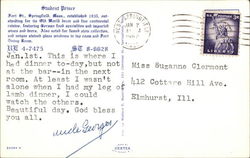 Student Prince
Fort St., Springfield, Mass., established 1935, outstanding
for its Old World decor and fine continental
cuisine, featuring German food specialties and imported
wines and beers. Also noted for famed stein collection,
and unique stained glass windows in tap room and Fort
Dining Room.
RE 4-7475 ST 8-8628
Jan.1st. This is where I
had dinner to-day, but not
at the bar--in the next
room. At least I wasn't
alone when I had my leg of
lamb dinner, I could
watch the others.
Beautiful day. God bless
you all.
Uncle George
Miss Suzanne Clermont
412 Cottage Hill Ave.
Elmhurst, Ill.
JAN 2
3¢
LIBERTY